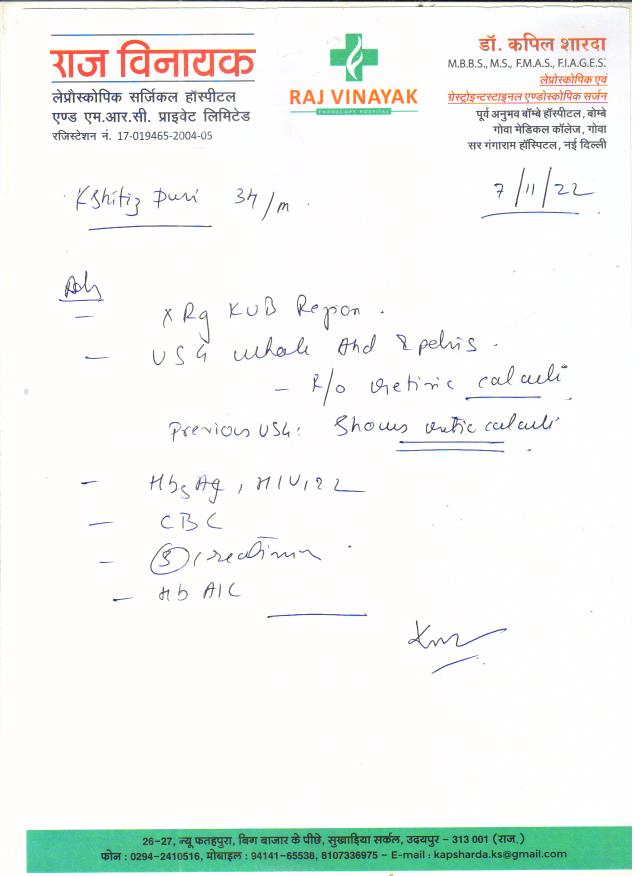 राज विनायक
लेप्रौस्कोपिक सर्जिकल हॉस्पीटल
एण्ड एम.आर.सी. प्राइवेट लिमिटेड
रजिस्टेशन नं. 17-019465-2004-05
RAJ VINAYAK
ENDOSCOPY HOSPITAL
डॉ. कपिल शारदा
M.B.B.S., M.S., F.M.A.S., F.I.A.G.E.S.
लेप्रोस्कोपिक एवं
ग्रेस्ट्रोइन्टस्टाइनल एण्डोस्कोपिक सर्जन
पूर्व अनुभव बॉम्बे हॉस्पीटल, बोम्बे
गोवा मेडिकल कॉलेज, गोवा
सर गंगाराम हॉस्पिटल, नई दिल्ली
Kshitiz Puri 34/m
7/11/22
Adv
- X Ray KUB Region.
- USG whole Abd & pelvis.
- R/o Uretric calculi
Previous USG: Shows uretric calculi
- HbsAg, HIV 1, 2
- CBC
- (S) Creatinine
- Hb A1C
26-27, न्यू फतहपुरा, बिग बाजार के पीछे, सुखाड़िया सर्कल, उदयपुर - 313 001 (राज.)
फोन : 0294-2410516, मोबाइल : 94141-65538, 8107336975 - E-mail : kapsharda.ks@gmail.com